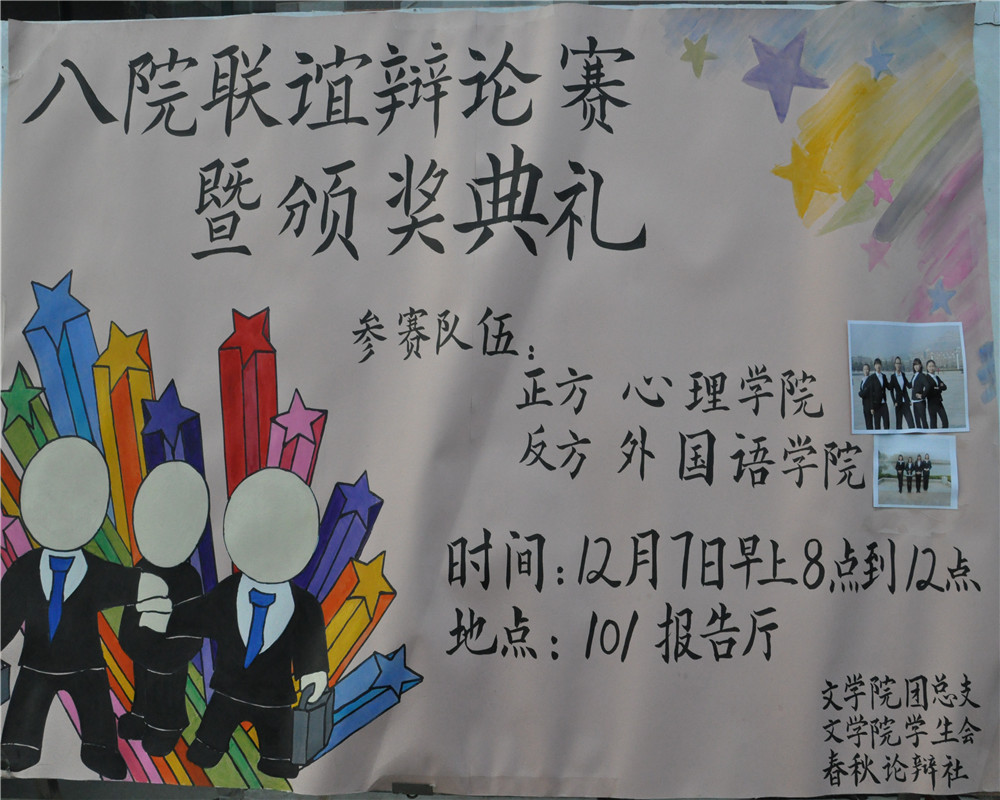 八院联谊辩论赛
暨颁奖典礼
参赛队伍：
正方 心理学院
反方 外国语学院
时间：12月7日早上8点到12点
地点：101报告厅
文学院团总支
文学院学生会
春秋论辩社